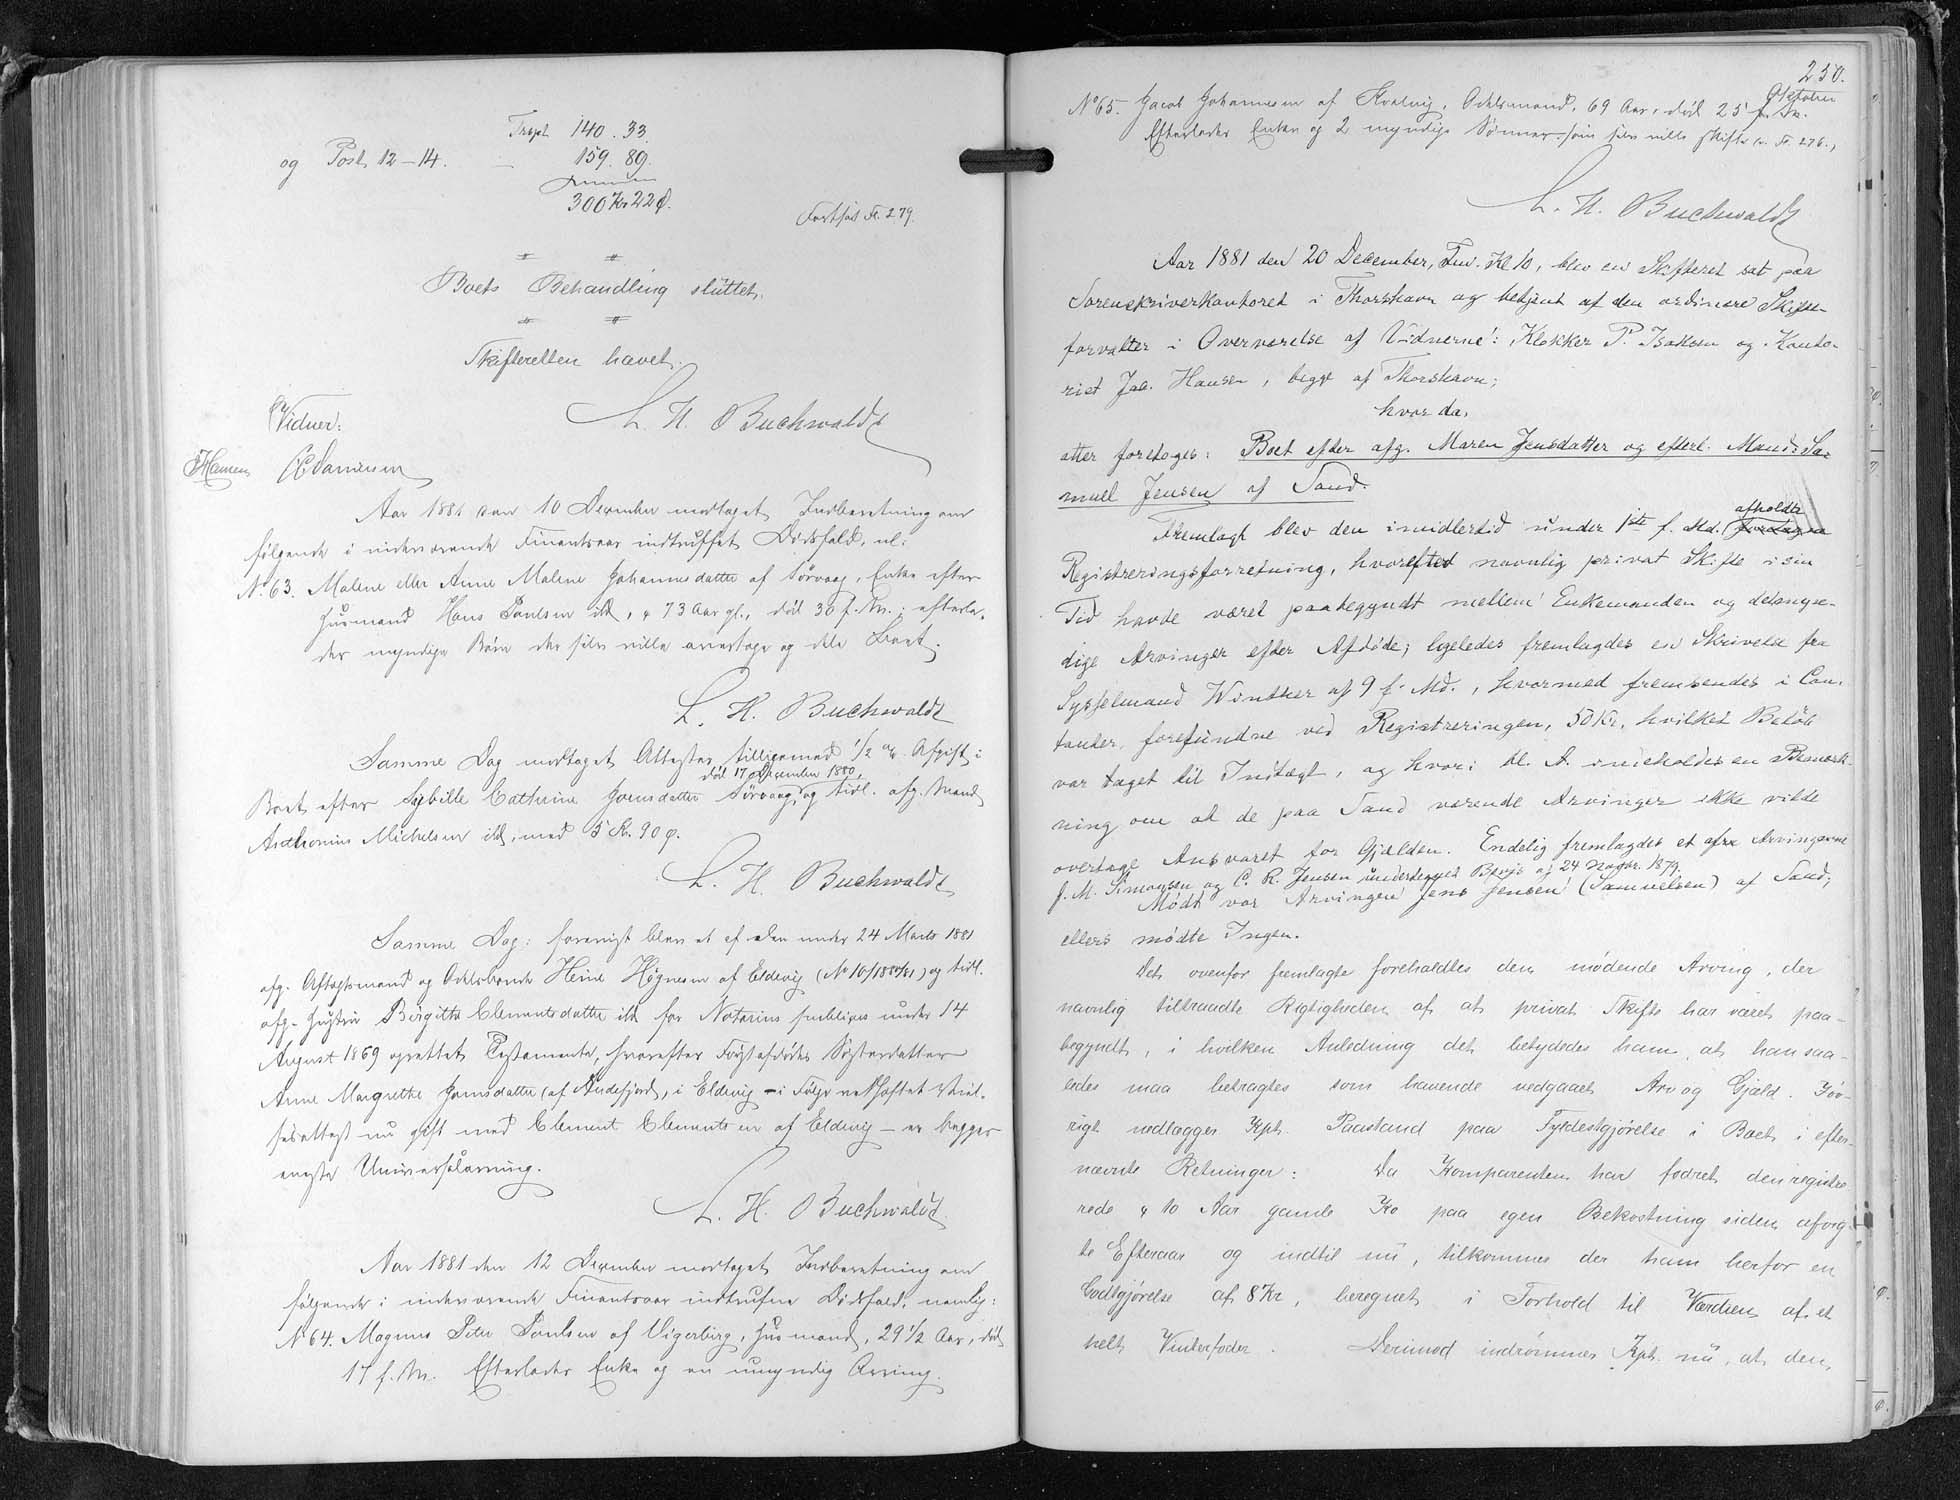 Trspt. 140. 33.
og Post 12-14. — 159. 89.
300 Kr 22 Ø.
Fortsat Fl. 279.
Boets Behandling sluttet.
Skifteretten hævet.
L. H. Buchwaldt
Vidner:
Aar 1881 den 10 December modtoges Indberetning om
følgende i nærværende Finantsaar indtruffet Dødsfald, nl:
No. 63. Malene eller Anne Malene Johannesdatter af Sørvaag, Enke efter
Husmand Hans Poulsen ibd., 73 Aar gl., død 30 f. M.; efterla-
der myndige Børn der selv ville overtage og dele Boet.
L. H. Buchwaldt
Samme Dag modtoges Attester tilligemed 1/2 % Afgift i
død 17 December 1880,
Boet efter Sybille Cathrine Joensdatter Sørvaag, og tidl. afg. Mand
Anthonius Michelsen ibd. med 5 Kr. 90 ø.
L. H. Buchwaldt
Samme Dag: foreviist blev et af den under 24 Marts 1881
afg. Aftægtsmand og Odelsbonde Heine Høgnesen af Eldevig (No 10/1880/81) og tidl.
afg. Hustru Birgitta Clementsdatter ibd. for Notarius publicus under 14
August 1869 oprettet Testamente, hvorefter Førstafdødes Søsterdatter
Anne Margrethe Joensdatter (af Andefjord, i Eldevig – i Følge vedhæftet Viel-
sesattest nu gift med Clement Clementsen af Eldevig – er begges
eneste Universalarving.
L. H. Buchwaldt
Aar 1881 den 12 December modtoges Indberetning om
følgende i nærværende Finantsaar indtrufne Dødsfald, nemlig:
No 64. Magnus Peter Poulsen af Vigerbirg, Husmand, 29 1/2 Aar, død
17 f. M. Efterlader Enke og en umyndig Arving.
230.
Oktober
No 65. Jacob Johannesen af Kvalvig, Odelsmand, 69 Aar, død 25
Efterlader Enke og 2 myndige Sønner som selv ville skifte Fl. 276.,
L. H. Buchwaldt
Aar 1881 den 20 December, Fmv. Kl 10, blev en Skifteret sat paa
Sorenskriverkontoret i Thorshavn og betjent af den ordinære Skifte-
forvalter i Overværelse af Vidnerne: Klokker P. Isaksen og Konto-
rist Jac. Hansen, begge af Thorshavn;
hvor da,
atter foretoges: Boet efter afg. Maren Jensdatter og efterl. Mand: Sa-
muel Jensen af Sand.
afholdte
Fremlagt blev den imidlertid under 1ste f. Md.
Registreringsforretning, hvorefter navnlig privat Skifte i sin
Tid havde været paabegyndt mellem Enkemanden og delangræ-
dige Arvinger efter Afdøde; ligeledes fremlagdes en Skrivelse fra
Sysselmand Winther af 9 f. Md., hvormed fremsendes i Con-
tanter, forefundne ved Registreringen, 50 Kr, hvilket Beløb
var taget til Indtægt, og hvori bl. A. indeholdes en Bemærk-
ning om at de paa Sand værende Arvinger ikke vilde
overtage Ansvaret for Gjælden. Endelig fremlagdes et afra Arvingerne
J. M. Simonsen og C. R. Jensen undertegnet Beviis af 24 Novbr. 1879.
Mødt var Arvingen Jens Jensen (Samuelsen) af Sand;
ellers mødte Ingen.
Det ovenfor fremlagte foreholdtes den mødende Arving, der
navnlig tiltraadte Rigtigheden af at privat Skifte har været paa-
begyndt, i hvilken Anledning det betydedes ham, at han saa-
ledes maa betragtes som havende vedgaaet Arv og Gjæld. Iøv-
rigt nedlægges Kpt. Paastand paa Fyldestgjørelse i Boet i efter-
nævnte Retninger: Da Komparenten har fodret den registre-
rede 10 Aar gamle Ko paa egen Bekostning siden afvig-
te Efteraar og indtil nu, tilkommer der ham herfor en
Godtgjørelse af 8 Kr, beregnet i Forhold til Værdien af et
helt Vinterfoder. Derimod indrømmer Kpt. nu, at den